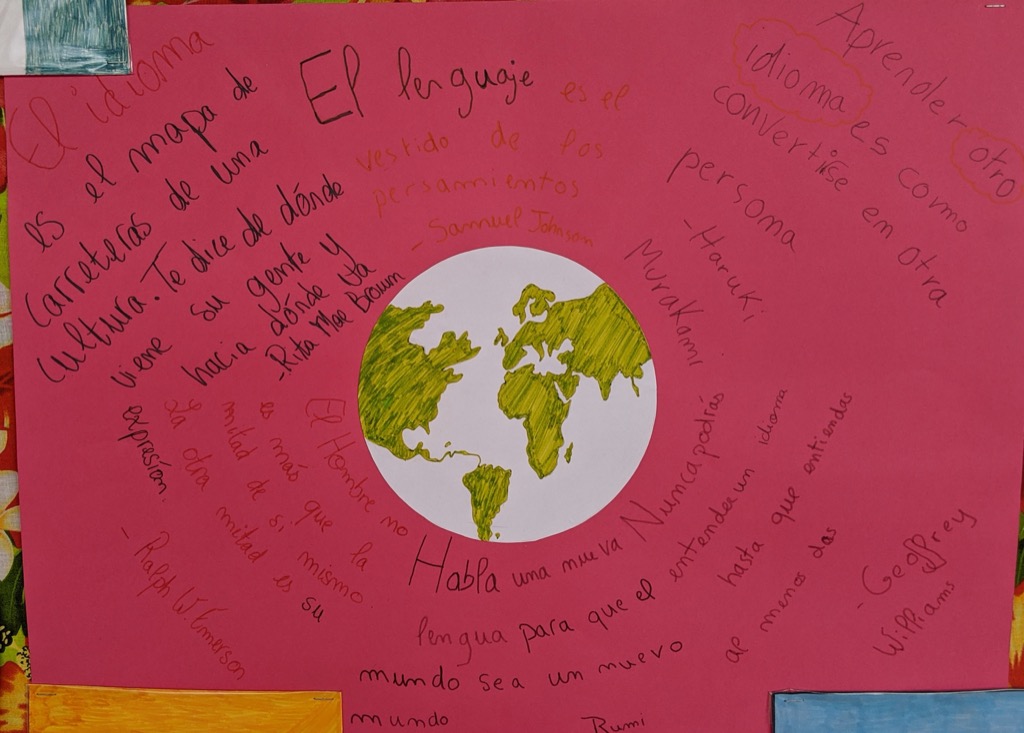 El idioma
es el mapa de
carreteras de una
cultura. Te dice de dónde
viene su gente y
hacia dónde va
-Rita Mae Brown
El lenguaje es el
vestido de los
persamientos
- Samuel Johnson
Aprender otro
idioma es como
convertirse en otra
persona
-Haruki
Murakami
Nunca podrías
entender un idioma
hasta que entiendas
al menos dos
-Geoffrey
Williams
Habla una nueva
lengua para que el
mundo sea un nuevo
mundo Rumi
El Hombre no
es más que la
mitad de si mismo
La otra mitad es su
expresión.
- Ralph W. Emerson